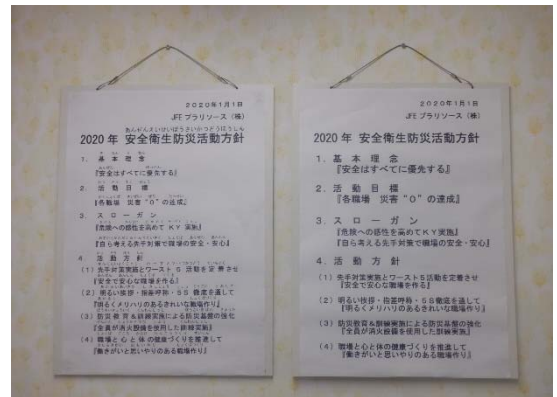 2020年1月1日
JFE プラリソース（株）
あんぜんえいせいぼうさいかつどうほうしん
2020 年 安全衛生防災活動方針
1. 基 本 理 念
『安全はすべてに優先する』
2. 活 動 目 標
『各職場 災害“0”の達成』
3. ス ロ ー ガ ン
『危険への感性を高めて KY 実施』
『自ら考える先手対策で職場の安全・安心』
4. 活 動 方 針
(1) 先手対策実践とワースト 5 活動を定着させ
『安全で安心な職場を作る』
(2) 明るい挨拶・指差呼称・5S 徹底を通して
『明るくメリハリのあるきれいな職場作り』
(3) 防災教育＆訓練実施による防災基盤の強化
『全員が消火設備を使用した訓練実施』
(4) 職場と心と体の健康づくりを推進して
『働きがいと思いやりのある職場作り』
2020年1月1日
JFE プラリソース（株）
2020年 安全衛生防災活動方針
1. 基 本 理 念
『安全はすべてに優先する』
2. 活 動 目 標
『各職場 災害“0”の達成』
3. ス ロ ー ガ ン
『危険への感性を高めてKY実施』
『自ら考える先手対策で職場の安全・安心』
4. 活 動 方 針
(1) 先手対策実践とワースト5活動を定着させ
『安全で安心な職場を作る』
(2) 明るい挨拶・指差呼称・5S徹底を通して
『明るくメリハリのあるきれいな職場作り』
(3) 防災教育＆訓練実施による防災基盤の強化
『全員が消火設備を使用した訓練実施』
(4) 職場と心と体の健康づくりを推進して
『働きがいと思いやりのある職場作り』